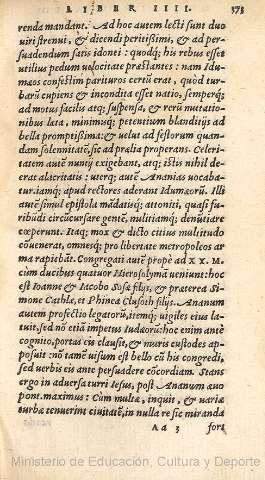 LIBER IIII. 373
renda mandant. Ad hoc autem lecti sunt duo
viri strenui, & dicendi peritissimi, & ad per-
suadendum satis idonei: quodq; his rebus esset
utilius pedum velocitate præstantes: nam Idu-
mæos confestim parituros certũ erat, quòd tur-
barũ cupiens & incondita esset natio, sempérq;
ad motus facilis atq; suspensa, & rerũ mutatio-
nibus læta, minimúq; petentium blanditijs ad
bella promptissima: & velut ad festorum quan-
dam solennitatẽ, sic ad prælia properans. Celeri-
tatem autẽ nuncij exigebant, atq; istis nihil de-
erat alacritatis: uterq; autẽ Ananias vocaba-
tur. iamq; apud rectores aderant Idumæorũ. Illi
autẽ simul epistola mãdatisq; attoniti, quasi fu-
ribũdi circũcursare gentẽ, militiamq; denũtiare
cœperunt. Itaq; mox & dicto citius multitudo
cõuenerat, omnesq; pro libertate metropoleos ar
ma rapiebãt. Congregati autẽ propè ad X X. M.
cùm ducibus quatuor Hierosolymã veniunt: hoc
est Ioanne & Iacobo Sosæ filijs, & præterea Si-
mone Cathlæ, et Phinea Clusoth filijs. Ananum
autem profectio legatorũ, itemq; vigiles eius la-
tuit, sed nõ etiã impetus Iudæorũ: hoc enim ante
cognito, portas eis clausit, & muris custodes ap-
posuit: nõ tamẽ visum est bello cũ his congredi,
sed verbis eis ante persuadere cõcordiam. Stans
ergo in aduersa turri Iesus, post Ananum æuo
pont. maximus: Cùm multæ, inquit, & variæ
turbæ tenuerint ciuitatẽ, in nulla re sic miranda
A a 3 fort
Ministerio de Educación, Cultura y Deporte